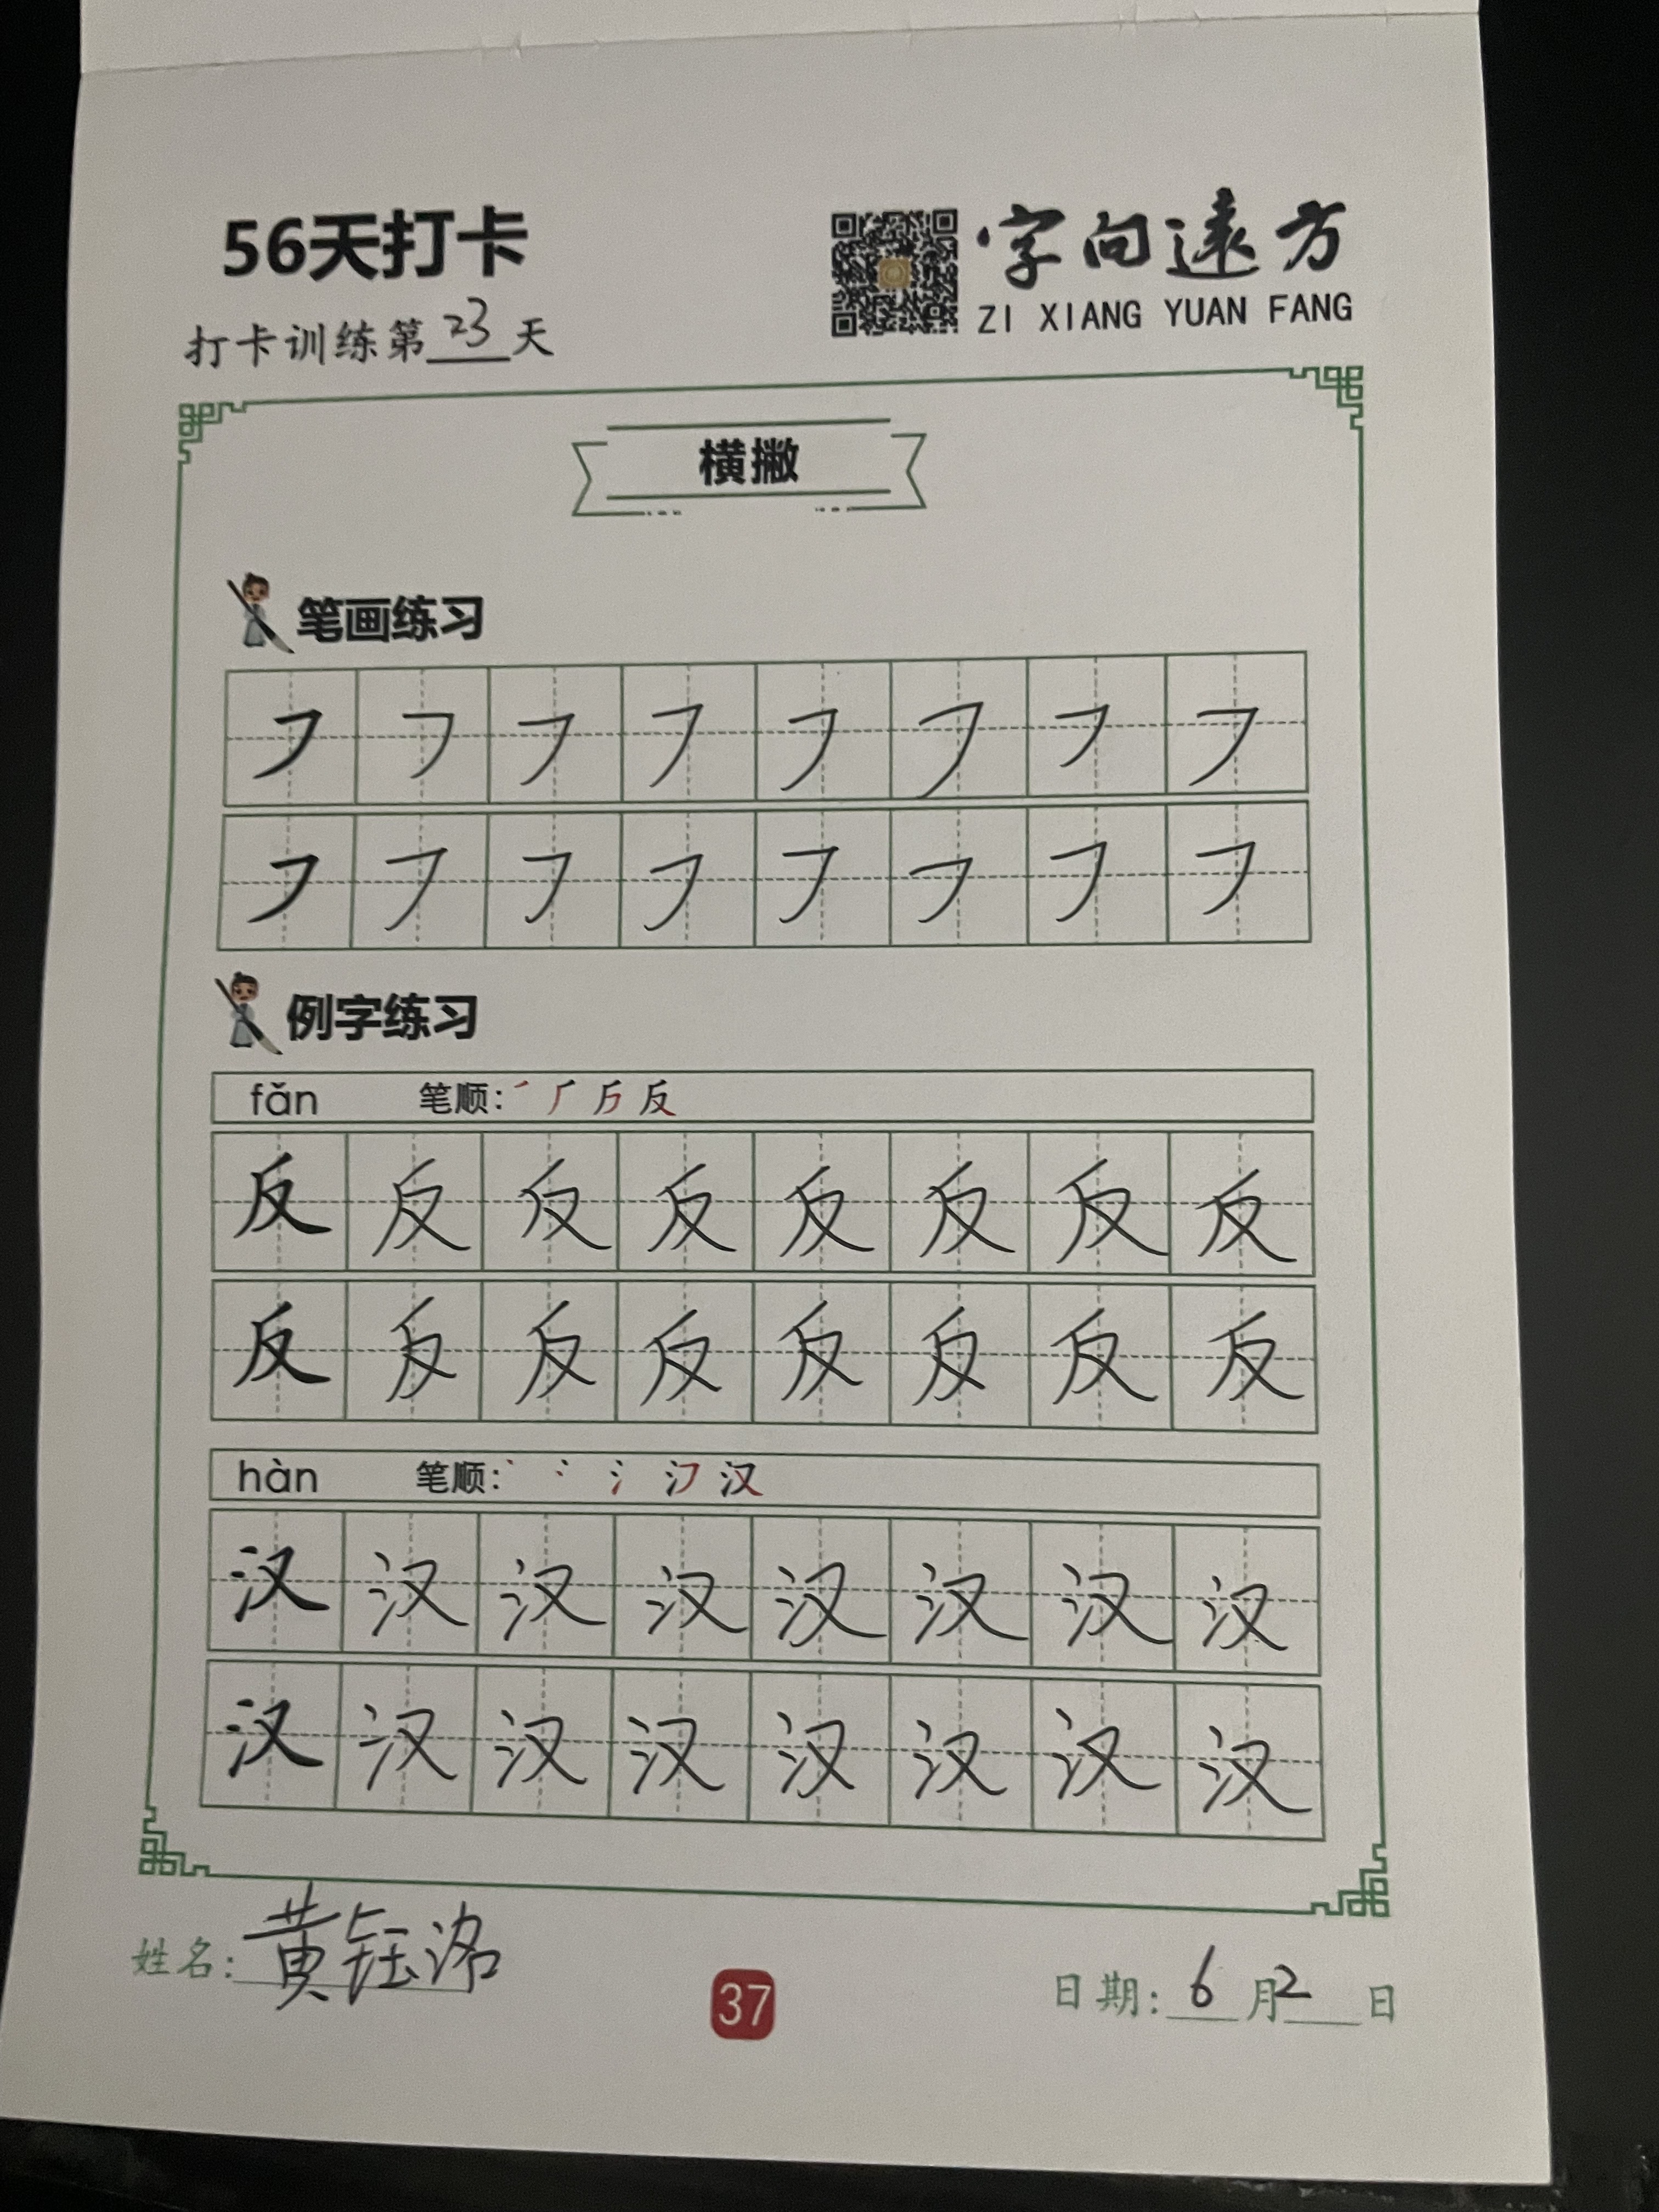 56天打卡
字向遠方
ZI XIANG YUAN FANG
打卡训练第23天
横撇
笔画练习
㇇㇇㇇㇇㇇㇇㇇㇇
㇇㇇㇇㇇㇇㇇㇇㇇
例字练习
fǎn 笔顺: 反
反反反反反反反反
反反反反反反反反
hàn 笔顺: 汉
汉汉汉汉汉汉汉汉
汉汉汉汉汉汉汉汉
姓名: 黄钰洺
37
日期: 6月2日